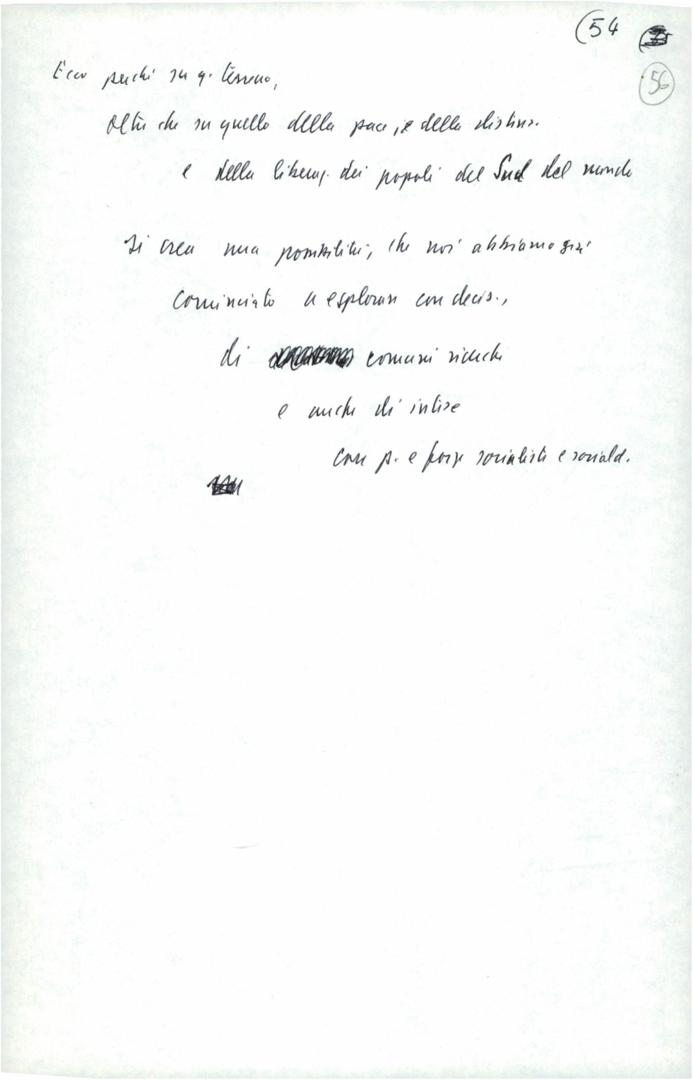 (54
56
Ecco perché su q. terreno,
oltre che su quello della pace, e della distens.
e della liberaz. dei popoli del Sud del mondo
si crea una possibilità, che noi abbiamo già
cominciato a esplorare con decis.,
di comuni ricerche
e anche di intese
con p. e forze socialiste e sociald.